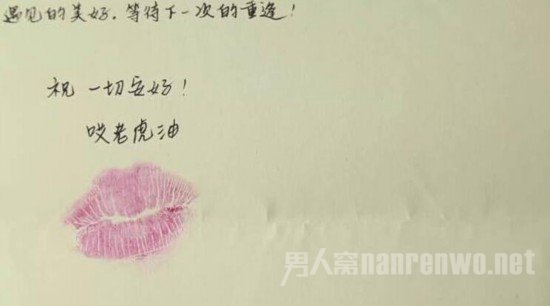 遇见的美好，等待下一次的重逢！
祝 一切安好！
哎老虎油
男人窝nanrenwo.net